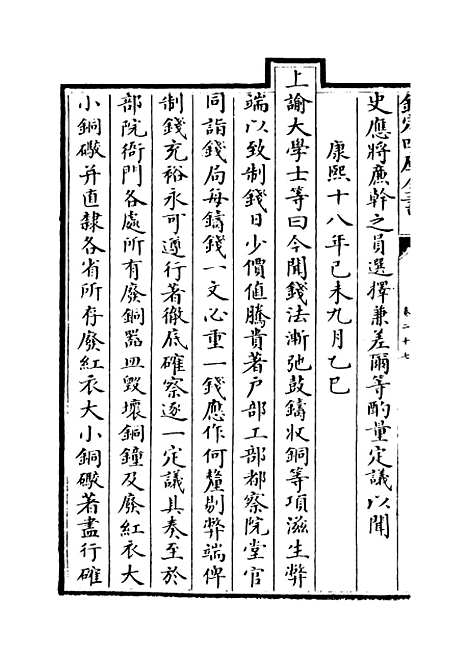 欽定四庫全書
卷二十七
史應將廉幹之員選擇兼差爾等酌量定議以聞
康熙十八年己未九月乙巳
上諭大學士等曰今聞錢法漸弛鼓鑄收銅等項滋生弊
端以致制錢日少價值騰貴著户部工部都察院堂官
同詣錢局每鑄錢一文必重一錢應作何釐剔弊端俾
制錢充裕永可遵行著徹底確察逐一定議具奏至於
部院衙門各處所有廢銅器皿毀壞銅鐘及廢紅衣大
小銅礮并直隸各省所存廢紅衣大小銅礮著盡行確